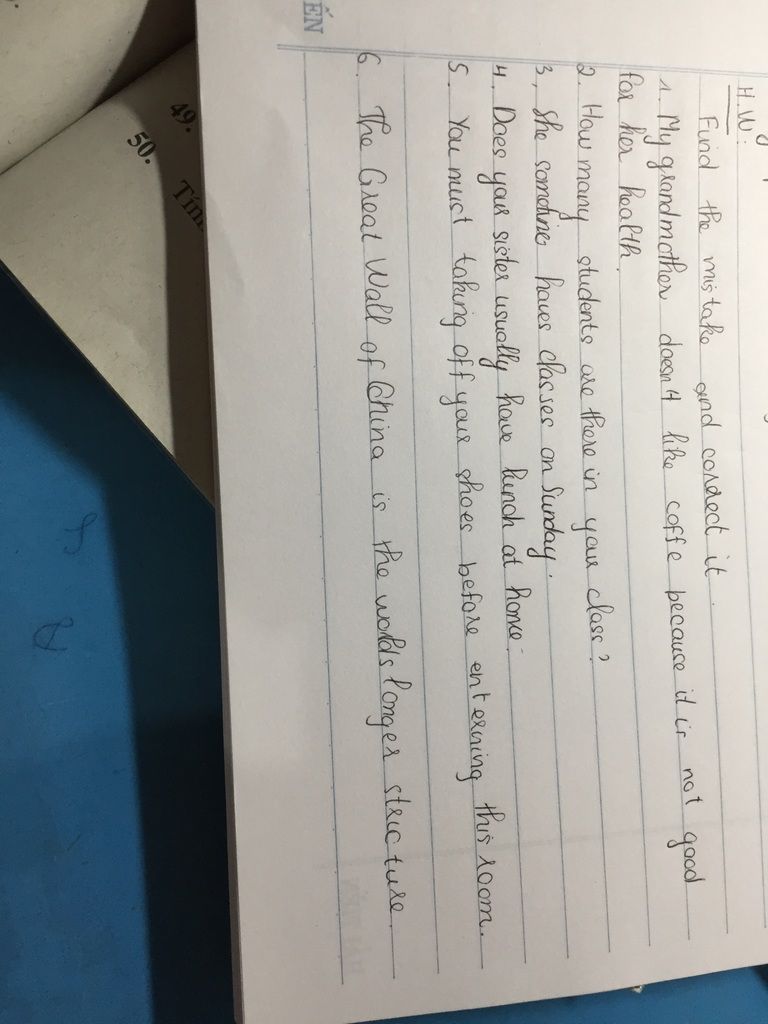 H.W:
Find the mistake and correct it.
1. My grandmother doesn't like coffe because it is not good
for her health.
2. How many students are there in your class?
3, She sometimes haves classes on Sunday.
4. Does your sister usually have lunch at home.
5. You must taking off your shoes before enterning this room.
6. The Great Wall of China is the worlds longer structure.
ẾN
49.
50.
Tính